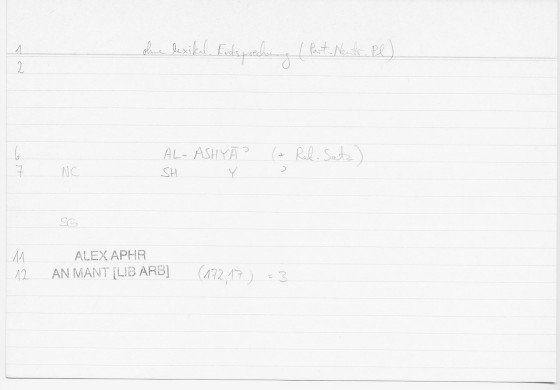 1 ohne lexikal. Entsprechung (Part. Neutr. Pl)
2
6 AL-ASHYĀʾ (+ Rel. Satz)
7 NC SH Y ʾ
SG
11 ALEX APHR
12 AN MANT [LIB ARB] (172,17) = 3